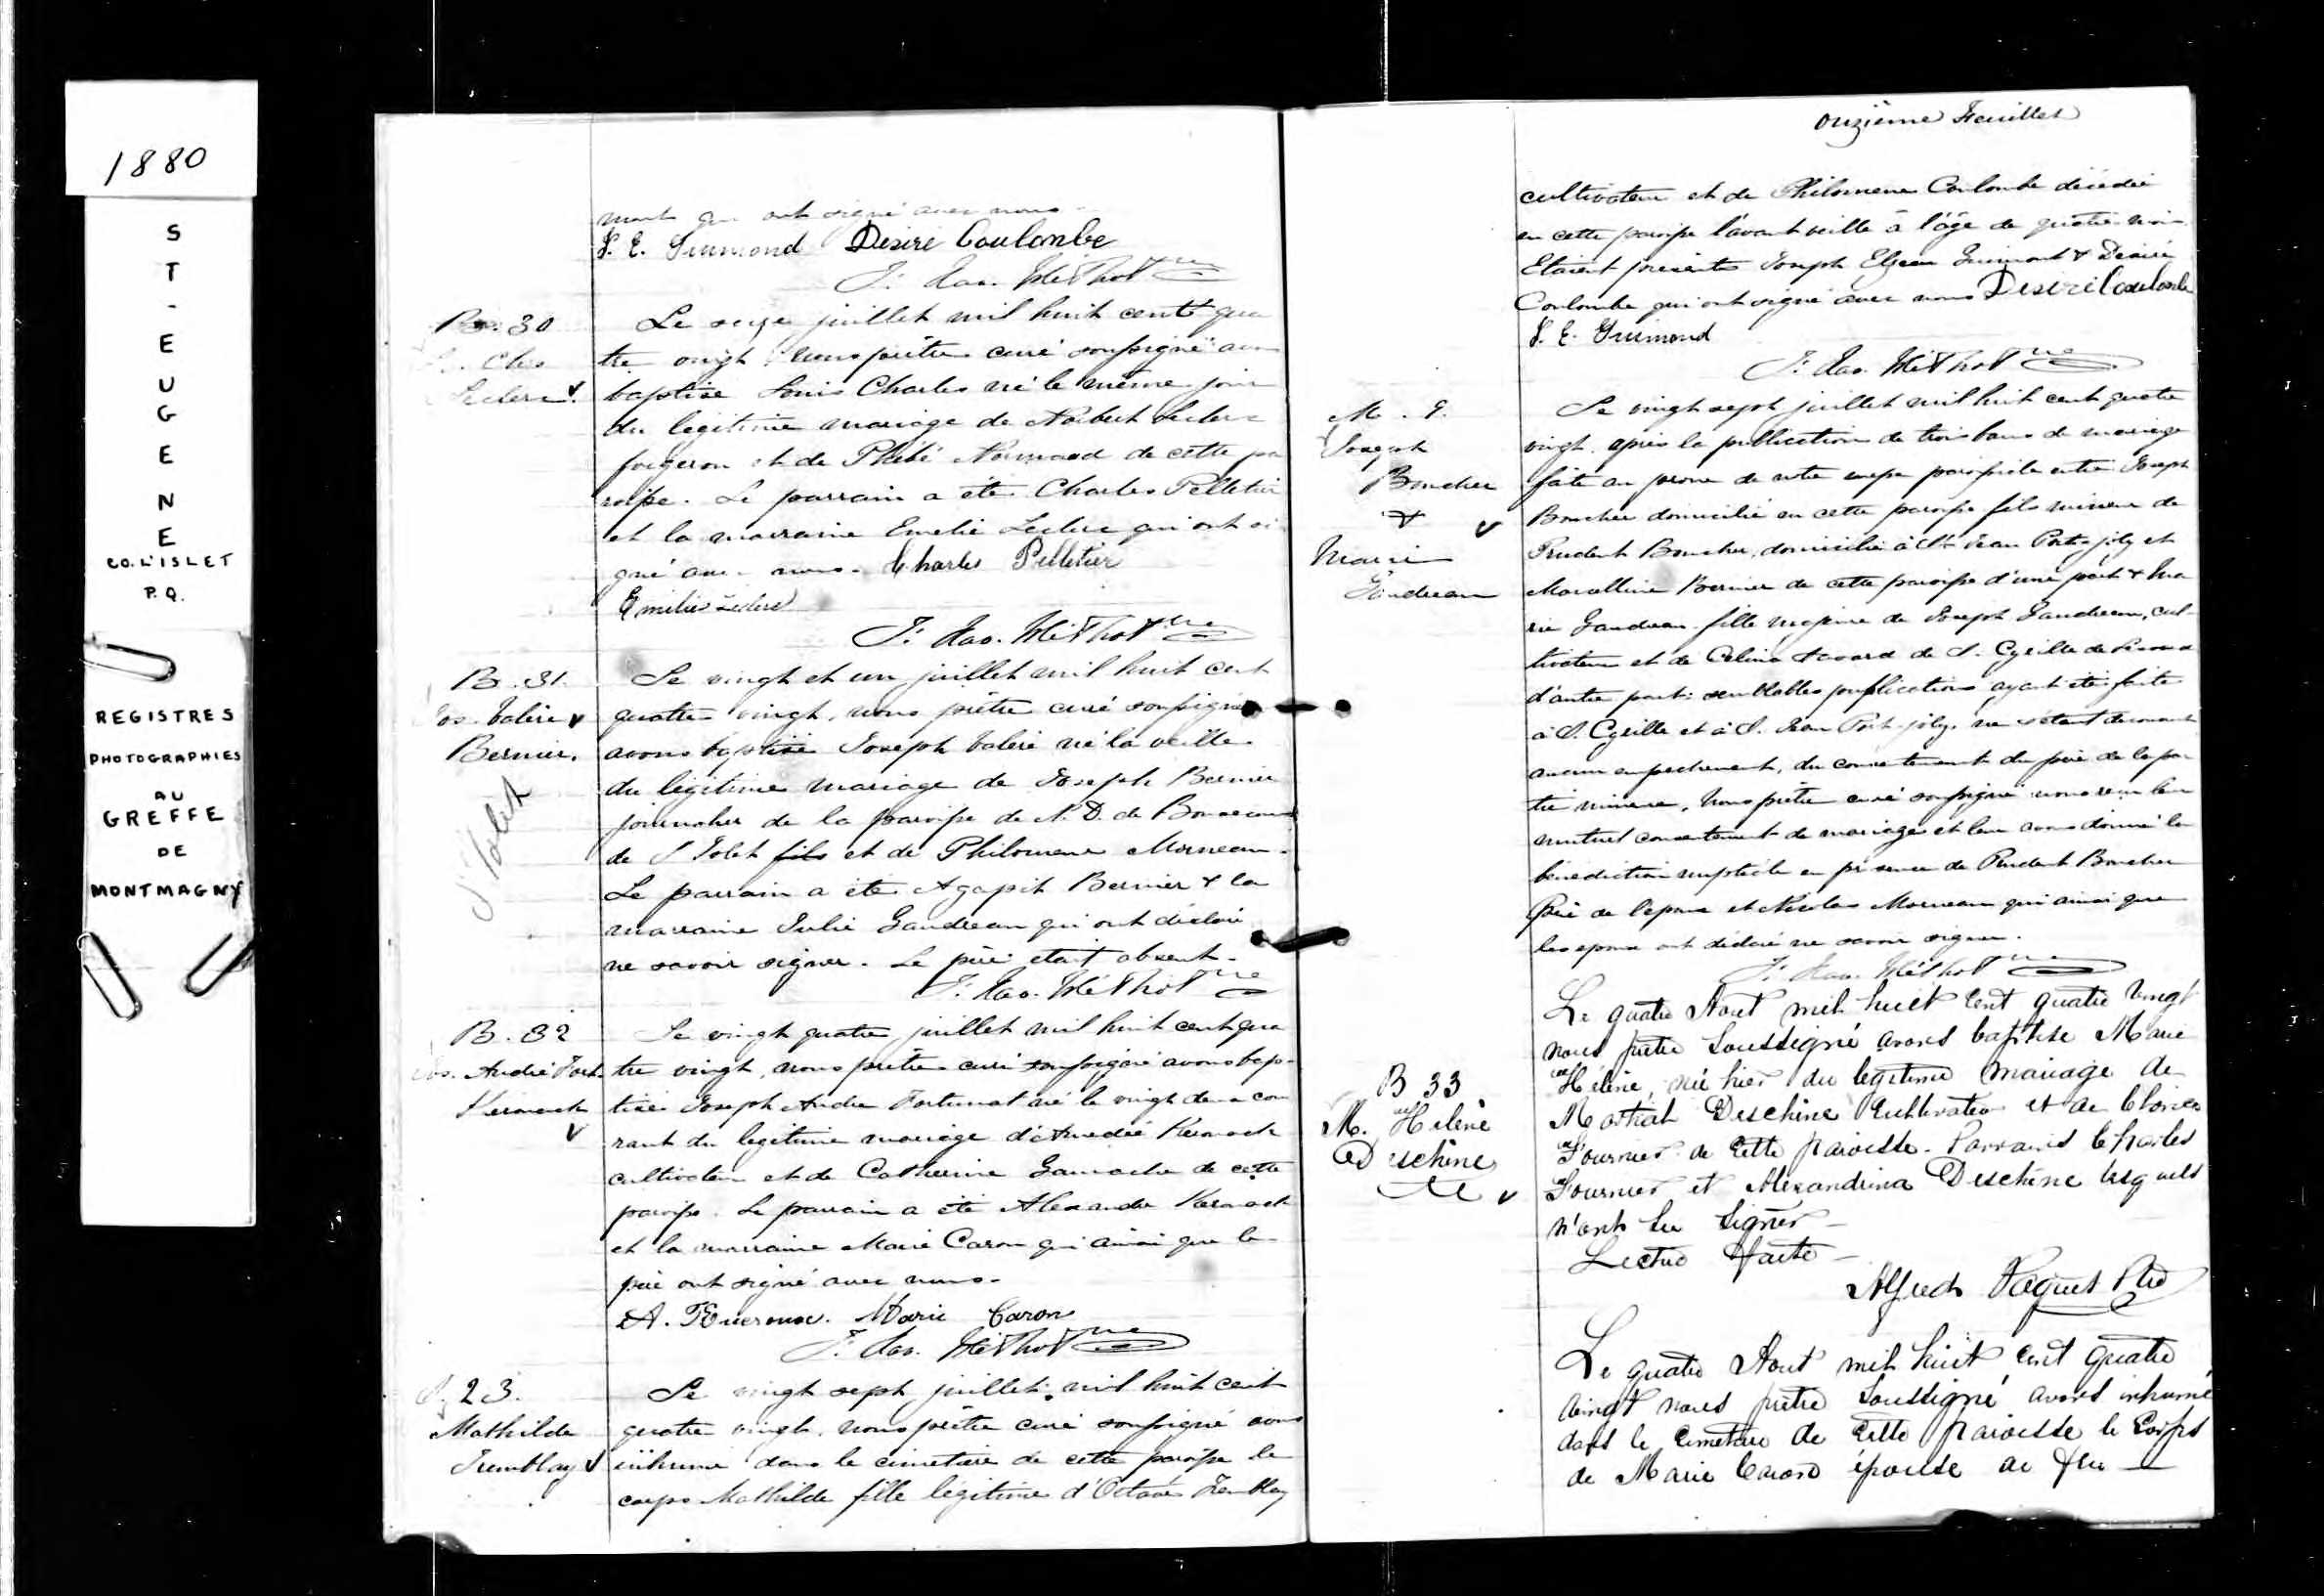 1880
S
T
-
E
U
G
E
N
E
CO. L'ISLET
P.Q.
REGISTRES
PHOTOGRAPHIES
AU
GREFFE
DE
MONTMAGNY
ment qui ont signé avec nous.
J. E. Guimond Désiré Coulombe
F. Xav. Méthot ptre
B. 30
L. Chs
Leclerc
Le seize juillet mil huit cent qua
tre vingt nous prêtre curé soussigné avons
baptisé Louis Charles né le même jour
du légitime mariage de Norbert Leclerc
forgeron et de Phébé Normand de cette pa
roisse. Le parrain a été Charles Pelletier
et la marraine Emelie Leclerc qui ont si
gné avec nous. Charles Pelletier
Emilie Leclerc
F. Xav. Méthot ptre
B. 31.
Jos. Valère
Bernier.
S. Islet
Le vingt et un juillet mil huit cent
quatre vingt, nous prêtre curé soussigné
avons baptisé Joseph Valère né la veille
du légitime mariage de Joseph Bernier
journalier de la paroisse de N. D. de Bonsecours
de L'Islet fils et de Philomène Morneau.
Le parrain a été Agapit Bernier & la
marraine Julie Gaudreau qui ont déclaré
ne savoir signer. Le père était absent.
F. Xav. Méthot ptre
B. 32
Jos. André Fort.
Kérouack
Le vingt quatre juillet mil huit cent qua
tre vingt, nous prêtre curé soussigné avons bap-
tisé Joseph André Fortunat né le vingt deux cou
rant du légitime mariage d'Amedée Kérouack
cultivateur et de Catherine Gamache de cette
paroisse. Le parrain a été Alexandre Kérouack
et la marraine Marie Caron qui ainsi que le
père ont signé avec nous.
A. Kuerouac. Marie Caron
F. Xav. Méthot ptre
S. 23.
Mathilde
Tremblay
Le vingt sept juillet mil huit cent
quatre vingt, nous prêtre curé soussigné avons
inhumé dans le cimetière de cette paroisse le
corps Mathilde fille légitime d'Octave Tremblay
onzième Feuillet
cultivateur et de Philomène Coulombe décédée
en cette paroisse l'avant veille à l'âge de quatre mois
Etaient présents Joseph Elzear Guimont & Désiré
Coulombe qui ont signé avec nous Désiré Coulombe
J. E. Guimond
F. Xav. Méthot ptre
M. 9.
Joseph
Boucher
&
Marie
Gaudreau
Le vingt sept juillet mil huit cent quatre
vingt, après la publication de trois bans de mariage
faite au prone de notre messe paroissiale entre Joseph
Boucher domicilié en cette paroisse fils mineur de
Prudent Boucher, domicilié à St Jean Port-joly et
Marcelline Bernier de cette paroisse d'une part & Ma
rie Gaudreau fille majeure de Joseph Gaudreau, cul-
tivateur et de Celina de S. Cyrille de
d'autre part: semblables publications ayant été faites
à S. Cyrille et à S. Jean Port-joly, ne s'étant découvert
aucun empechement, du consentement du père de la par
tie mineure, Nous prêtre curé soussigné avons reçu leur
mutuel consentement de mariage et leur avons donné la
bénédiction nuptiale en présence de Prudent Boucher
père de l'époux et Nicolas Morneau qui ainsi que
les époux ont déclaré ne savoir signer.
F. Xav. Méthot ptre
B 33
M. Hélène
Deschène
Le quatre Aout mil huit cent quatre vingt
nous prêtre soussigné avons baptisé Marie
Hélène, née hier du légitime mariage de
Martial Deschène Cultivateur et de
Fournier de cette paroisse. Parrains Charles
Fournier et Alexandrina Deschène lesquels
n'ont su signer -
Lecture faite -
Alfred Paquet Ptre
Le quatre Aout mil huit cent quatre
vingt nous prêtre soussigné avons inhumé
dans le cimetière de cette paroisse le Corps
de Marie Caron épouse de feu —